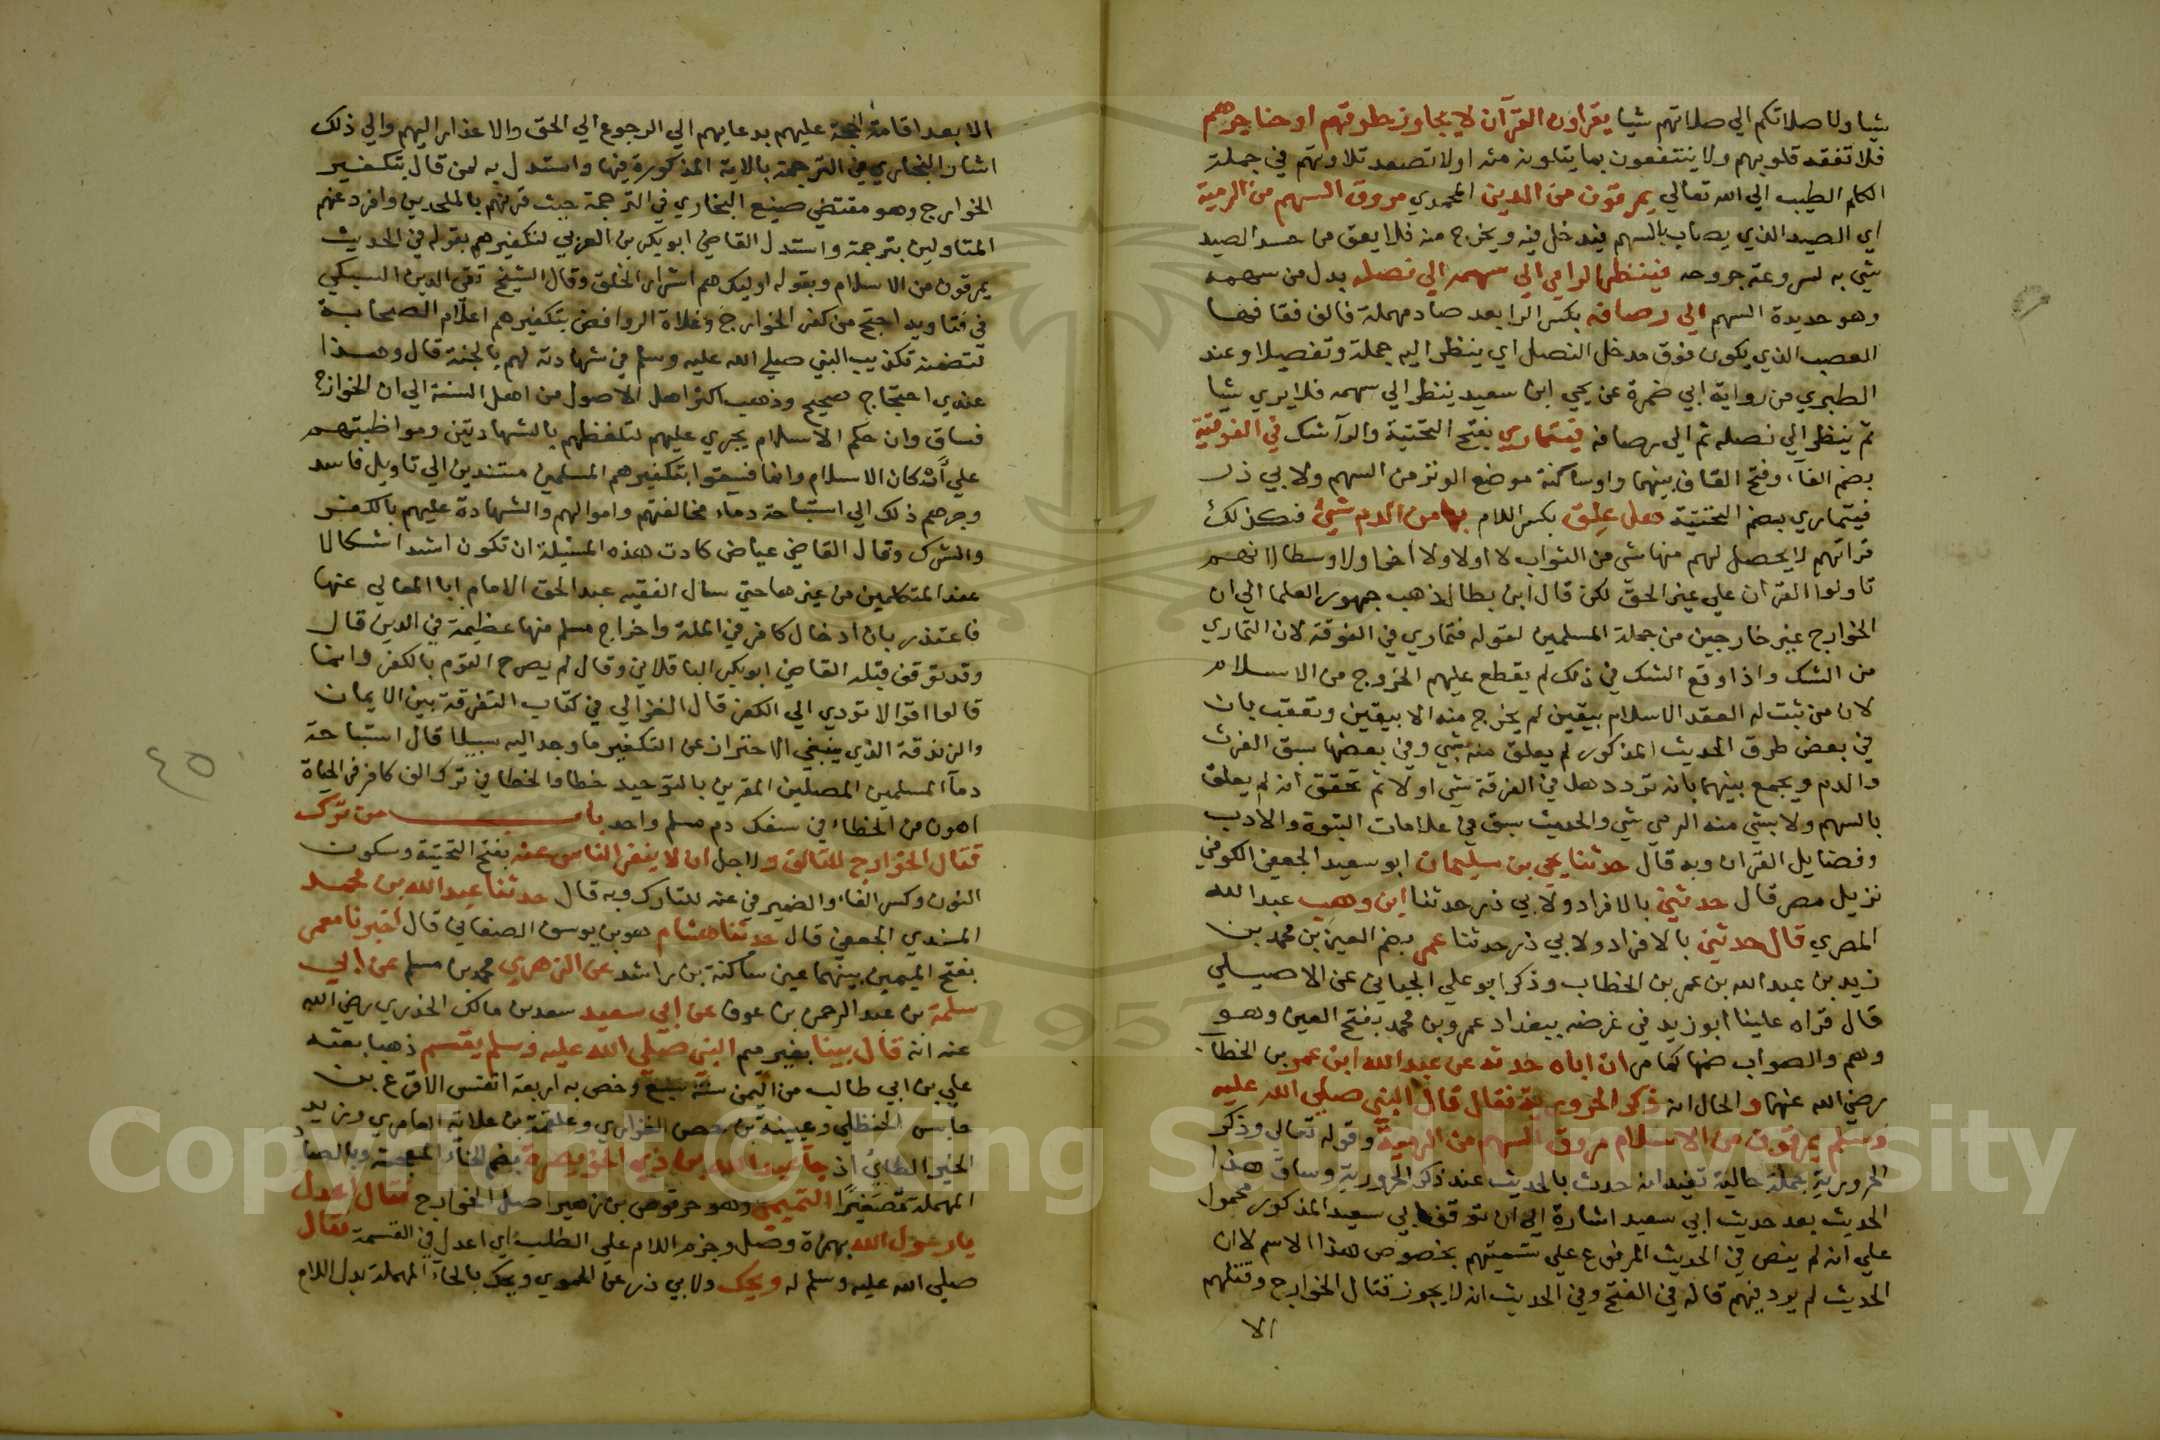 شيا ولا صلاتكم الي صلاتهم شيا يقراون القرآن لا يجاوز حلوقهم او حناجرهم
فلا تفقه قلوبهم ولا ينتفعون بما يتلونه منه او لا تصعد تلاوتهم في جملة
الكلم الطيب الي الله تعالي يمرقون من الدين المحمدي مروق السهم من الرمية
اي الصيد الذي يصاب بالسهم فيدخل فيه ويخرج منه فلا يعلق من جسد الصيد
شي به لسرعة خروجه فينظر الرامي الي سهمه الي نصله بدل من سهمه
وهو حديدة السهم الي رصافه بكسر الرا بعد صاد مهملة فالف ففا فها
العصب الذي يكون فوق مدخل النصل اي ينظر اليه جملة وتفصيلا وعند
الطبري من رواية ابي ضمرة عن يحي ابن سعيد ينظر الي سهمه فلا يري شيا
ثم ينظر الي نصله ثم الي رصافه فيتماري بفتح التحتية والرآ شك في الفوقة
بضم الفآء وفتح القاف بينهما واو ساكنة موضع الوتر من السهم ولابي ذر
فيتماري بضم التحتية هل علق بكسر اللام بها من الدم شيء فكذلك
قراتهم لا يحصل لهم منها شي من الثواب لا اولا ولا اخرا ولا وسطا لانهم
تاولوا القران علي غير الحق لكن قال ابن بطال ذهب جمهور العلما الي ان
الخوارج غير خارجين من جملة المسلمين لقوله فتماري في الفوقة لان التماري
من الشك واذا وقع الشك في ذلك لم يقطع عليهم الخروج من الاسلام
لان من ثبت له العقد الاسلام بيقين لم يخرج منه الا بيقين وتعقب بان
في بعض طرق الحديث المذكور لم يعلق منه شي وفي بعضها سبق الفرث
والدم ويجمع بينهما بانه تردد هل في الفرقة شي اولا ثم تحقق انه لم يعلق
بالسهم ولا بشي منه الرمي شي والحديث سبق في علامات النبوة والادب
وفضايل القران وبه قال حدثنا يحي بن سليمان ابو سعيد الجعفي الكوفي
نزيل مصر قال حدثني بالافراد ولابي ذر حدثنا ابن وهب عبد الله
المصري قال حدثني بالافراد ولابي ذر حدثنا عمر بضم العين بن محمد بن
زيد بن عبد الله بن عمر بن الخطاب وذكر ابو علي الجياني عن الاصيلي
قال قراه علينا ابو زيد في عرضه ببغداد عمرو بن محمد بفتح العين وهو
وهم والصواب ضمها كما مر ان اباه حدثه عن عبد الله ابن عمر بن الخطاب
رضي الله عنهما والحال انه ذكر الحرورية فقال قال النبي صلي الله عليه
وسلم يمرقون من الاسلام مروق السهم من الرمية وقوله تعالي وذكر
الحرورية جملة حالية تفيد انه حدث بالحديث عند ذكر الحرورية وساق هذا
الحديث بعد حديث ابي سعيد اشارة الي ان توقف ابي سعيد المذكور محمول
علي انه لم ينص في الحديث المرفوع علي تسميتهم بخصوص هذا الاسم لا ان
الحديث لم يرد فيهم قاله في الفتح وفي الحديث انه لا يجوز قتال الخوارج وقتلهم
الا
الا بعد اقامة الحجة عليهم بدعايهم الي الرجوع الي الحق والاعذار اليهم والي ذلك
اشار البخاري في الترجمة بالاية المذكورة فيها واستدل به لمن قال بتكفير
الخوارج وهو مقتضي صنيع البخاري في الترجمة حيث قرنهم بالملحدين وافرد عنهم
المتاولين بترجمة واستدل القاضي ابو بكر بن العربي لتكفيرهم بقوله في الحديث
يمرقون من الاسلام وبقوله اوليك هم اشرار الخلق وقال الشيخ تقي الدين السبكي
في فتاويه احتج من كفر الخوارج وغلاة الروافض بتكفيرهم اعلام الصحابة
لتضمنه تكذيب النبي صلي الله عليه وسلم في شهادته لهم بالجنة قال وهذا
عندي احتجاج صحيح وذهب اكثر اهل الاصول من اهل السنة الي ان الخوارج
فساق وان حكم الاسلام يجري عليهم لتلفظهم بالشهادتين ومواظبتهم
علي اركان الاسلام وانما فسقوا بتكفيرهم المسلمين مستندين الي تاويل فاسد
وجرهم ذلك الي استباحة دماء مخالفهم واموالهم والشهادة عليهم بالكفر
والشرك وقال القاضي عياض كادت هذه المسئلة ان تكون اشد اشكالا
عند المتكلمين من غيرها حتي سال الفقيه عبد الحق الامام ابا المعالي عنها
فاعتذر بان ادخال كافر في الملة واخراج مسلم منها عظيمة في الدين قال
وقد توقف قبله القاضي ابو بكر الباقلاني وقال لم يصرح القوم بالكفر وانما
قالوا اقوالا تودي الي الكفر قال الغزالي في كتاب التفرقة بين الايمان
والزندقة الذي ينبغي الاحتراز عن التكفير ما وجد اليه سبيلا قال استباحة
دمآ المسلمين المصلين المقرين بالتوحيد خطا والخطا في ترك الف كافر في الحياة
اهون من الخطاء في سفك دم مسلم واحد باب من ترك
قتال الخوارج للتالف ولاجل ان لا ينفر الناس عنه بفتح التحتية وسكون
النون وكسر الفاء والضمير في عنه للتارك وبه قال حدثنا عبد الله بن محمد
المسندي الجعفي قال حدثنا هشام هو بن يوسف الصنعاني قال اخبرنا معمر
بفتح الميمين بينهما عين ساكنة بن راشد عن الزهري محمد بن مسلم عن ابي
سلمة بن عبد الرحمن بن عوف عن ابي سعيد سعد بن مالك الخدري رضي الله
عنه انه قال بينا بغير ميم النبي صلي الله عليه وسلم يقسم ذهبا بعثه
علي بن ابي طالب من اليمن سنة تسع وخص به اربعة انفس الاقرع بن
حابس الحنظلي وعيينة بن حصن الفزاري وعلقمة بن علاثة العامري وزيد
الخير الطائ اذ جآ عبد الله بن ذي الخويصرة بضم الخآء المعجمة وبالصاد
المهملة مصغرا التميمي وهو حرقوص بن زهير اصل الخوارج فقال اعدل
يا رسول الله بهمزة وصل وجزم اللام علي الطلب اي اعدل في القسمة فقال
صلي الله عليه وسلم له ويحك ولابي ذر عن الحموي ويحك بالحآء المهملة بدل اللام
٤٥
Copyright © King Saud University
1957